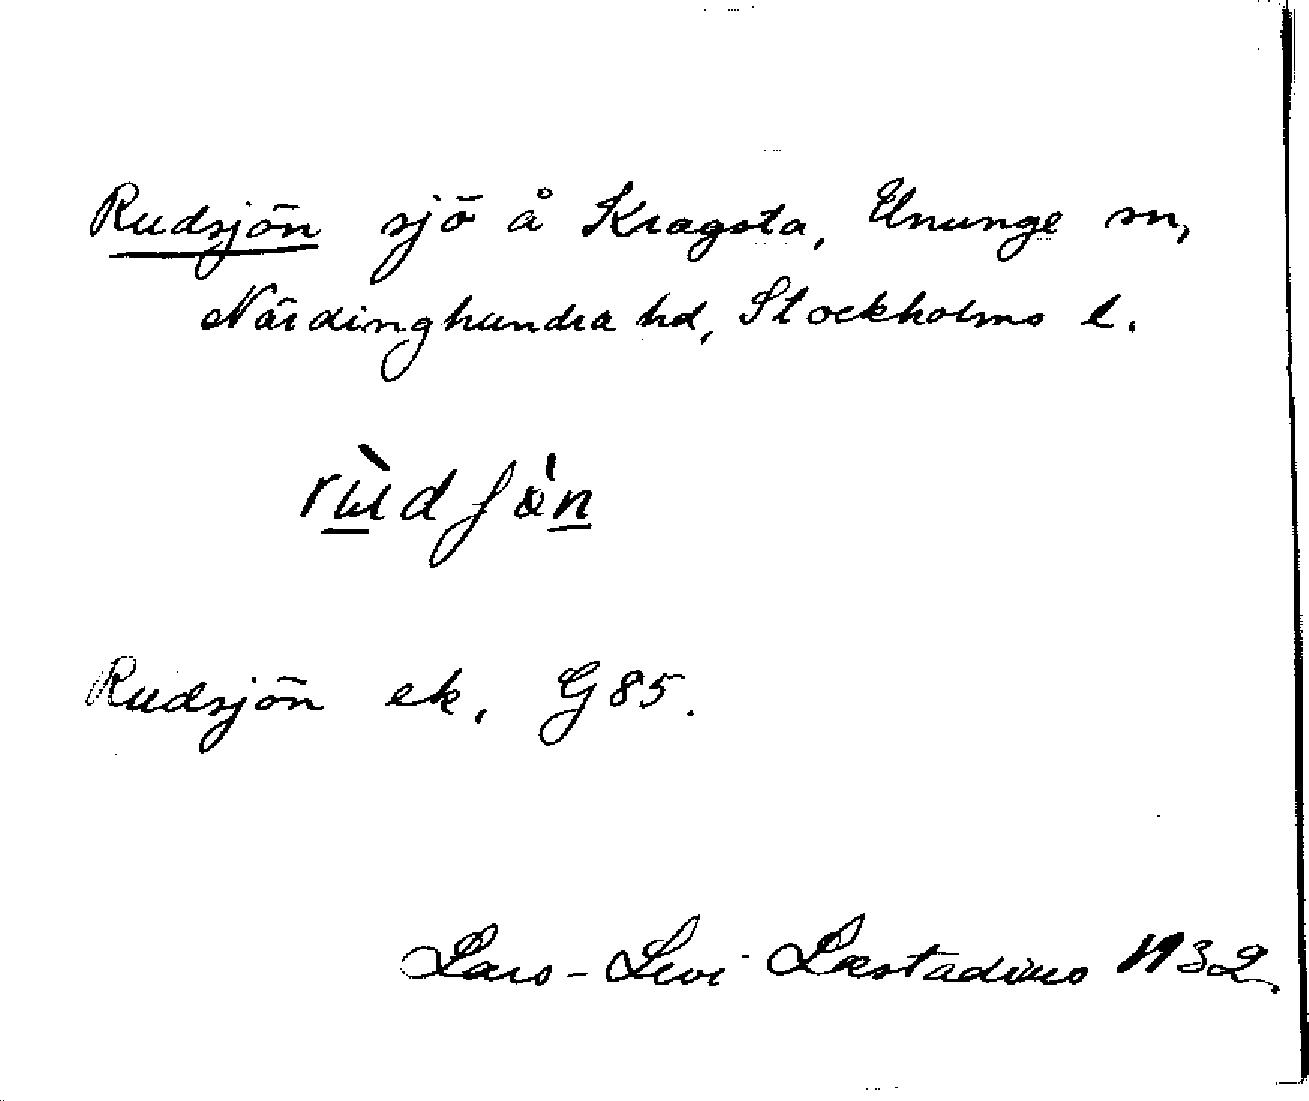 Rudsjön sjö å Kragsta, Ununge sn,
Närdinghundra hd, Stockholms l.
Rudsjön ek. G85.
Lars-Levi Læstadius N32.